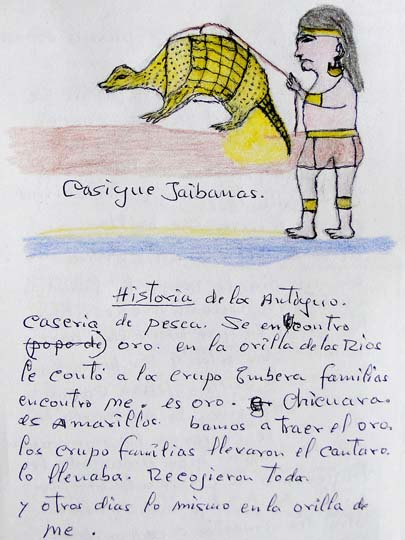 Casique Jaibanas.
Historia de los Antiguo.
caseria de pesca. Se encontro
(popo de) oro. en la orilla de los Rios
le contó a los crupo Embera familias
encontro me. es oro. Chicuara.
es Amarillos. bamos a traer el oro.
los crupo familias llevaron el cantaro.
lo llenaba. Recogieron toda.
y otros dias lo mismo en la orilla de
me.